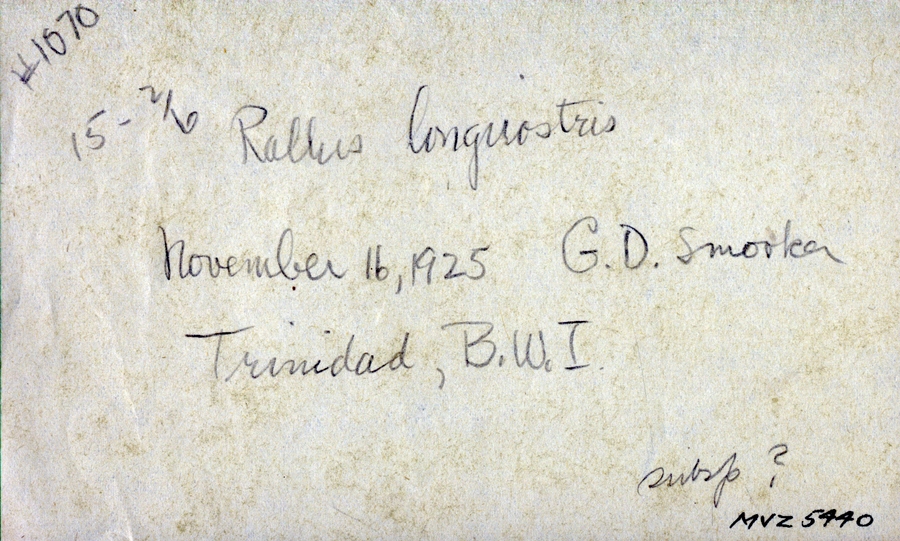 #1070
15-2/6 Rallus longirostris
November 16, 1925 G.D. Smooker
Trinidad, B.W.I.
subsp ?
MVZ 5440